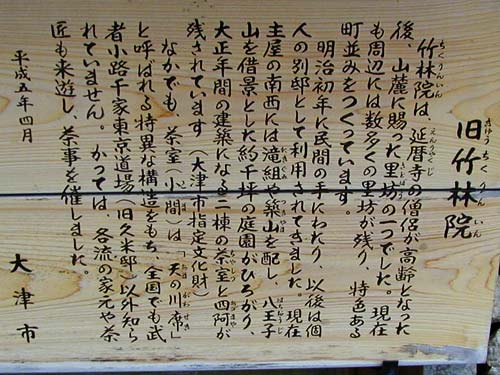 旧竹林院
きゅう ちく りん いん
竹林院は、延暦寺の僧侶が高齢となった
後、山麓に賜った里坊の一つでした。現在
も周辺には数多くの里坊が残り、特色ある
町並みをつくっています。
明治初年に民間の手にわたり、以後は個
人の別邸として利用されてきました。現在
主屋の南西には滝組や築山を配し、八王子
山を借景とした約千坪の庭園がひろがり、
大正年間の建築になる二棟の茶室と四阿が
残されています(大津市指定文化財)
なかでも、茶室(小間)は「天の川席」
と呼ばれる特異な構造をもち、全国でも武
者小路千家東京道場(旧久米邸)以外知ら
れていません。かつては、各流の家元や茶
匠も来遊し、茶事を催しました。
平成五年四月
大津市